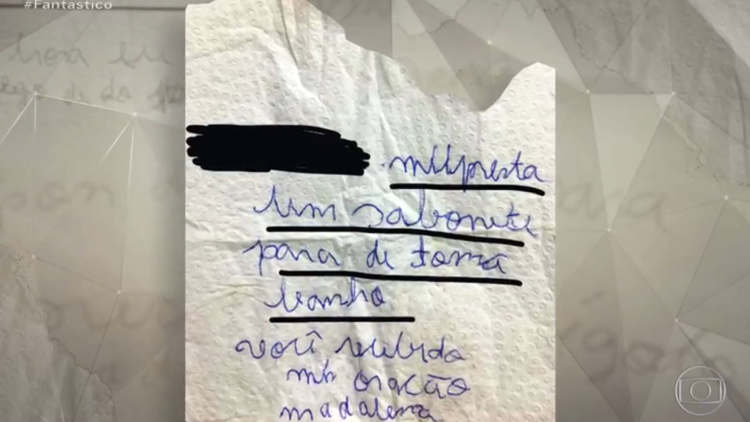 #Fantástico
mllpresta
um sabonete
para de tomá
banho
você recebido
mh oração
madalena